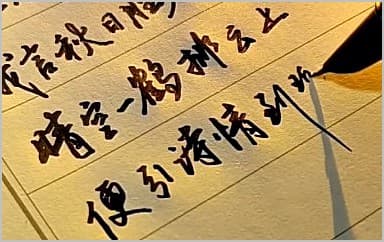 我言秋日胜
晴空一鹤排云上
便引诗情到碧